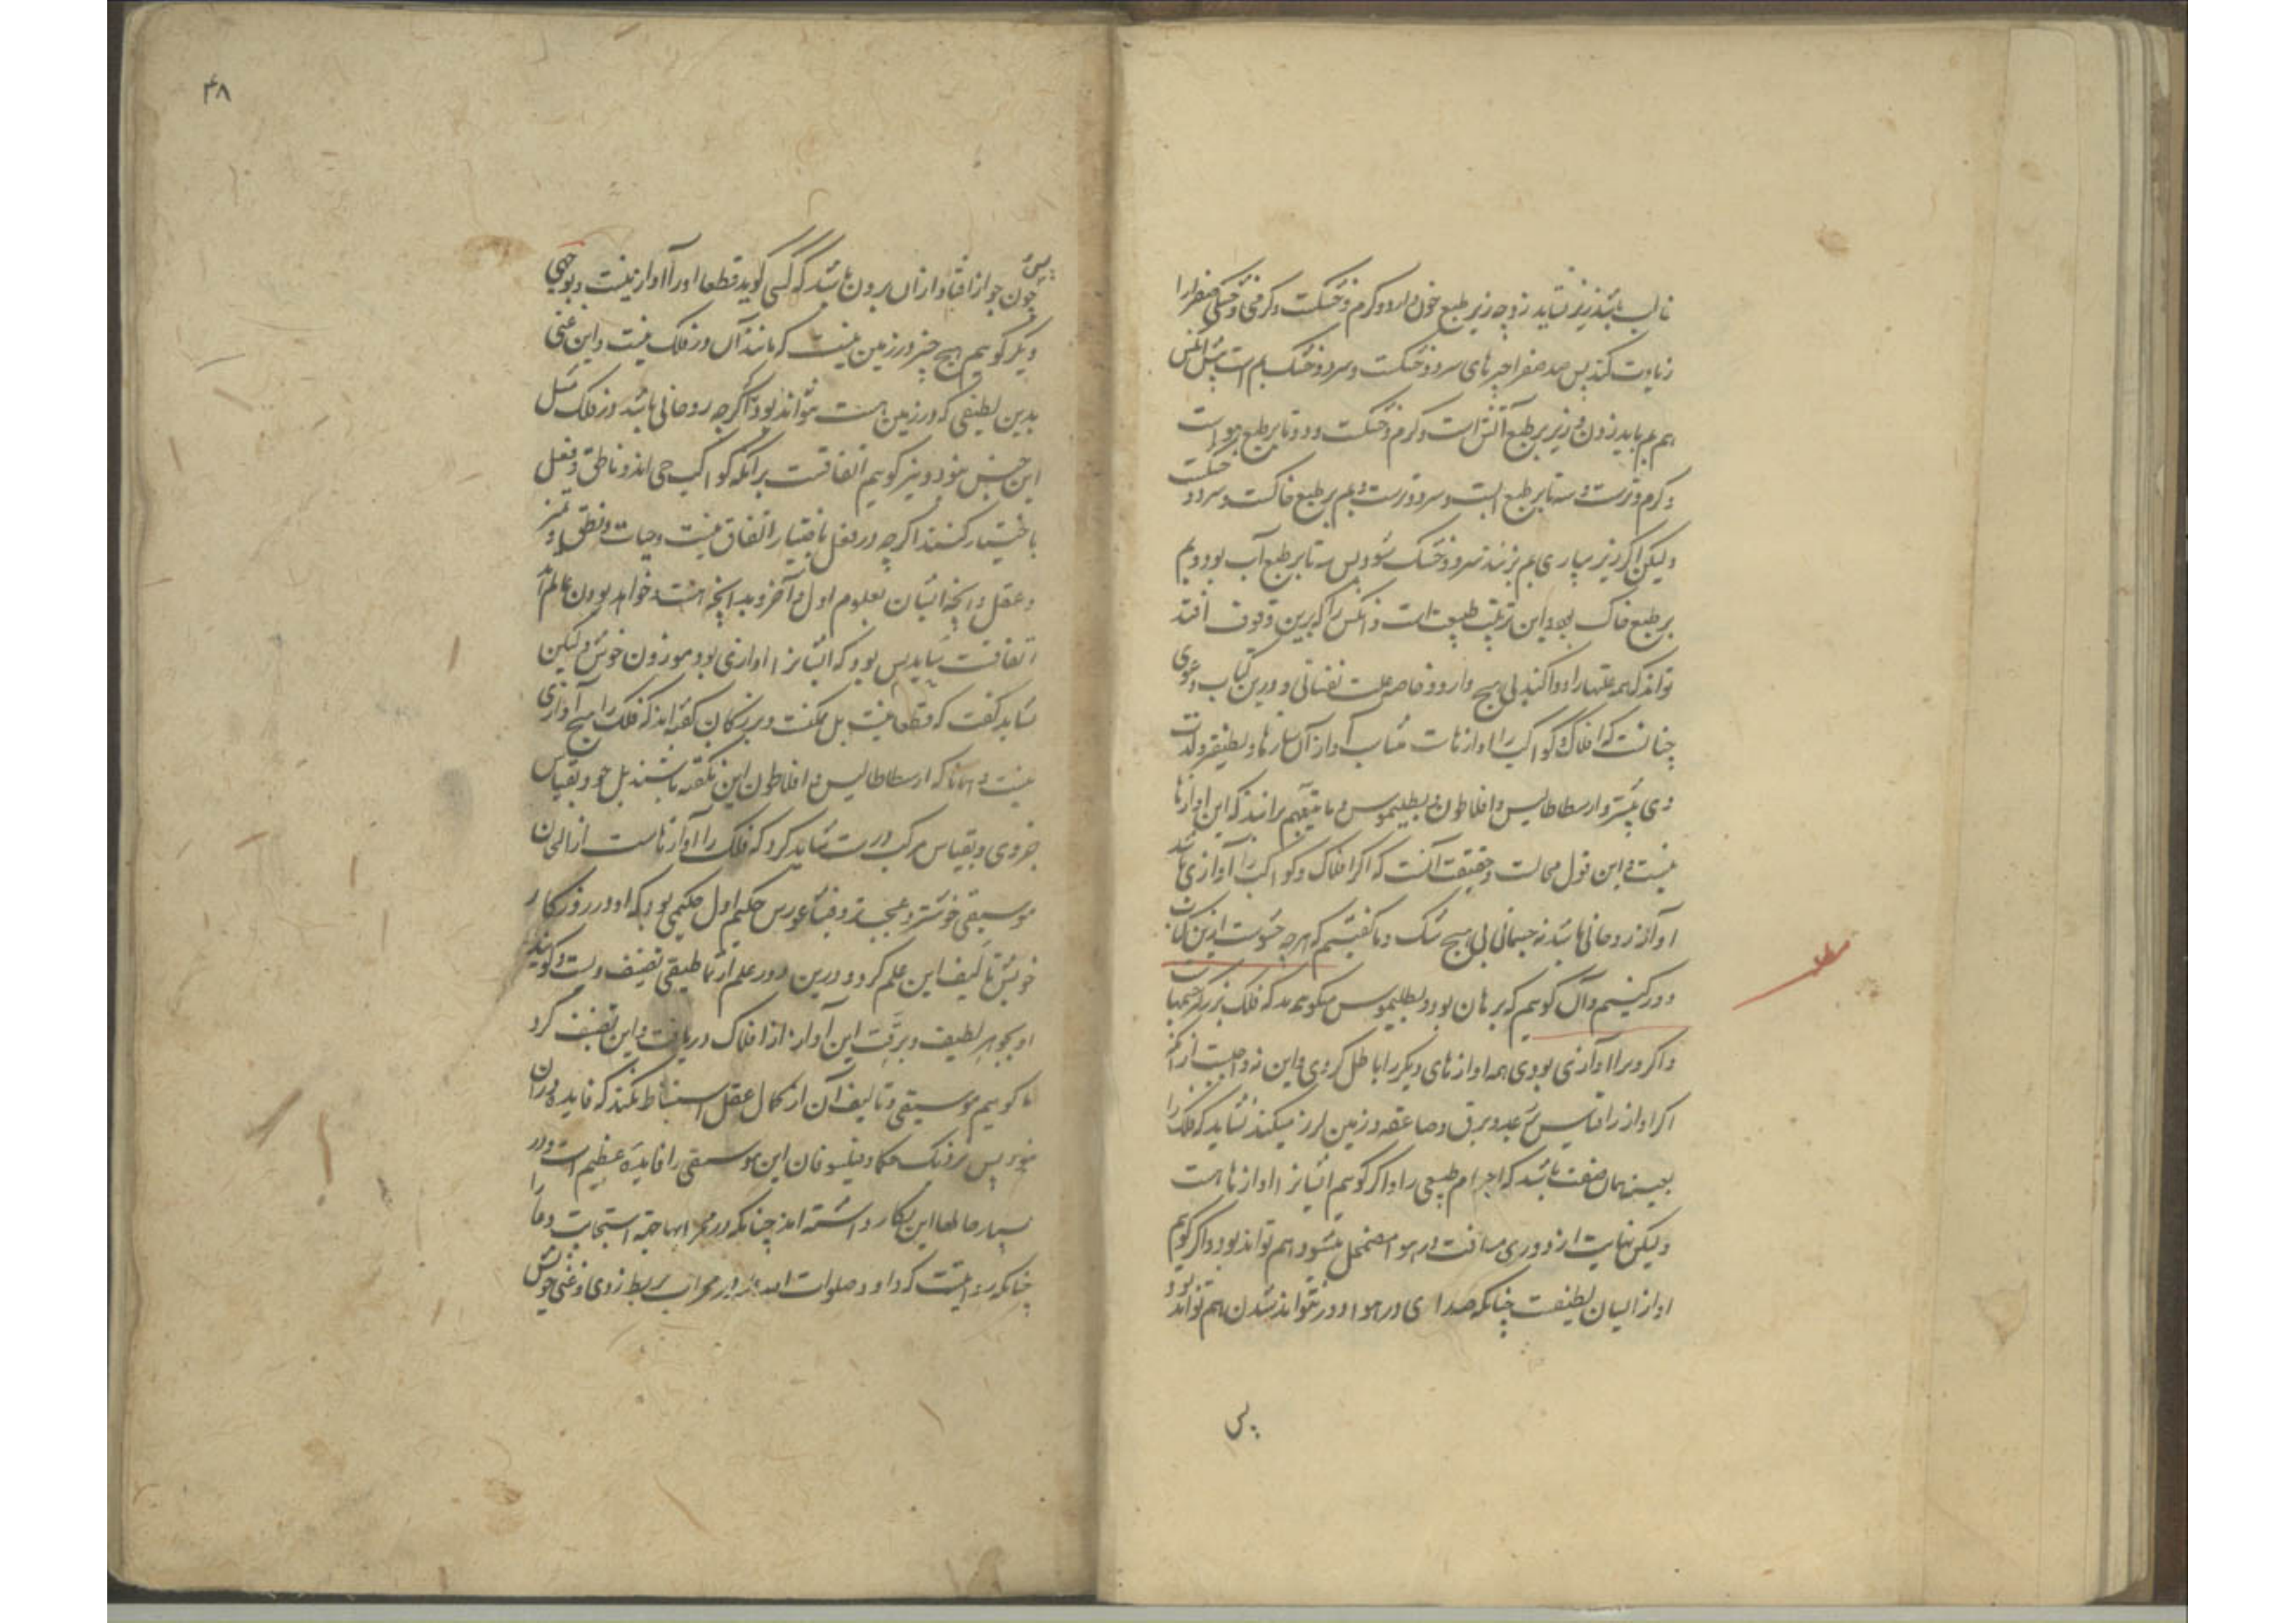 غالب باشد زیر نشاید زد چه زیر طبع خون دارد و گرم و خشکست و گرمی و خشکی صفرا را
زیادت کند پس ضد صفرا چیزهای سرد و خشکست و سرد و خشک بم است
هم بم باید زدن و زیر بر طبع آتش است و گرم و خشکست و دوتا بر طبع هواست
و گرم و ترست و سه تا بر طبع آبست و سرد و ترست و بم بر طبع خاکست و سرد و خشکست
ولیکن اگر زیر بسیاری بم بزنند سرد و خشک شود پس سه تا بر طبع آب بود و بم
بر طبع خاک بود و این ترتیب طبیعت است و آنکس را که برین وقوف افتد
تواند که همه علتها را دوا کند بی هیچ دارو و خاصه علت نفسانی و درین کتاب دعوی
چنانست که افلاک و کواکب را آوازهاست مشابه آواز آن سازها و لطیفتر و لذت
وی بیشتر و ارسطاطالیس و افلاطون و بطلیموس برانند که این آوازها
نیست و این قول محالست و حقیقت آنست که اگر افلاک و کواکب را آوازی باشد
آواز روحانی باشد نه جسمانی بی هیچ شک و ما گفتیم که هرچه حشوست ازین کتاب
دور کنیم و آن گوییم که برهان بود و بطلیموس میگوید که فلک بزرگتر جسمهاست
و اگر ویرا آوازی بودی همه آوازهای دیگر را باطل کردی و این نه واجبست از آنک
اگر آواز را قیاس رعد و برق و صاعقه و زمین لرز میکنند نشاید که فلک را
بعینه همان صفت باشد که اجرام طبیعی را و اگر گوییم ایشانرا آوازها است
ولیکن نهایت از دوری مسافت در هوا مضمحل میشود هم تواند بود و اگر گوییم
آواز ایشان لطیفست چنانکه صدای در هوا و دور نتواند شدن هم تواند بود
پس
۴۸
پس
چون جواز افتاد از آن برون باشد که کسی گوید قطعا او را آواز نیست و بوجهی
دیگر گوییم هیچ چیز در زمین نیست که مانند آن در فلک نیست و این غنی
بدین لطیفی که در زمین است نتواند بود اگرچه روحانی باشد در فلک مثل
این جنس بنود و نیز گوییم اتفاقست برانکه کواکب حی اند و ناطق و فعل
باختیار کنند اگرچه در فعل باختیار اتفاق نیست و حیات و نطق و تمیز
و عقل و آنچه ایشان بعلوم اول و آخر و بدانچه هست و خواهد بودن عالم اند
اتفاقست نباید پس بود که ایشانرا آوازی بود موزون خوش ولیکن
شاید گفت که قطعا نیست بل ممکنست و بزرگان گفته اند که فلک را هیچ آوازی
نیست و همانا که ارسطاطالیس و افلاطون این نگفته باشند بل وبقیاس
جزوی و بقیاس مرکب درست شاید کرد که فلک را آوازهاست از الحان
موسیقی خوشتر و عجبتر و فیثاغورس حکیم اول حکیمی بود که او در روزگار
خویش تالیف این علم کرد و درین دور علم ارثماطیقی تصنیف ویست و گویند
او بجوهر لطیف و برقت این آواز از افلاک دریافت و این تصنیف کرد
اما گوییم موسیقی و تالیف آن از کمال عقل استنباط نکند که فایده در آن
نبود پس نزدیک حکما و فیلسوفان این موسیقی را فایده عظیم است و در
بسیار جاها این بکار داشته اند چنانکه در محرابها جهة استجابت دعا را
چنانکه روایتست که داود صلوات الله در محراب بربط زدی و غنی خوش